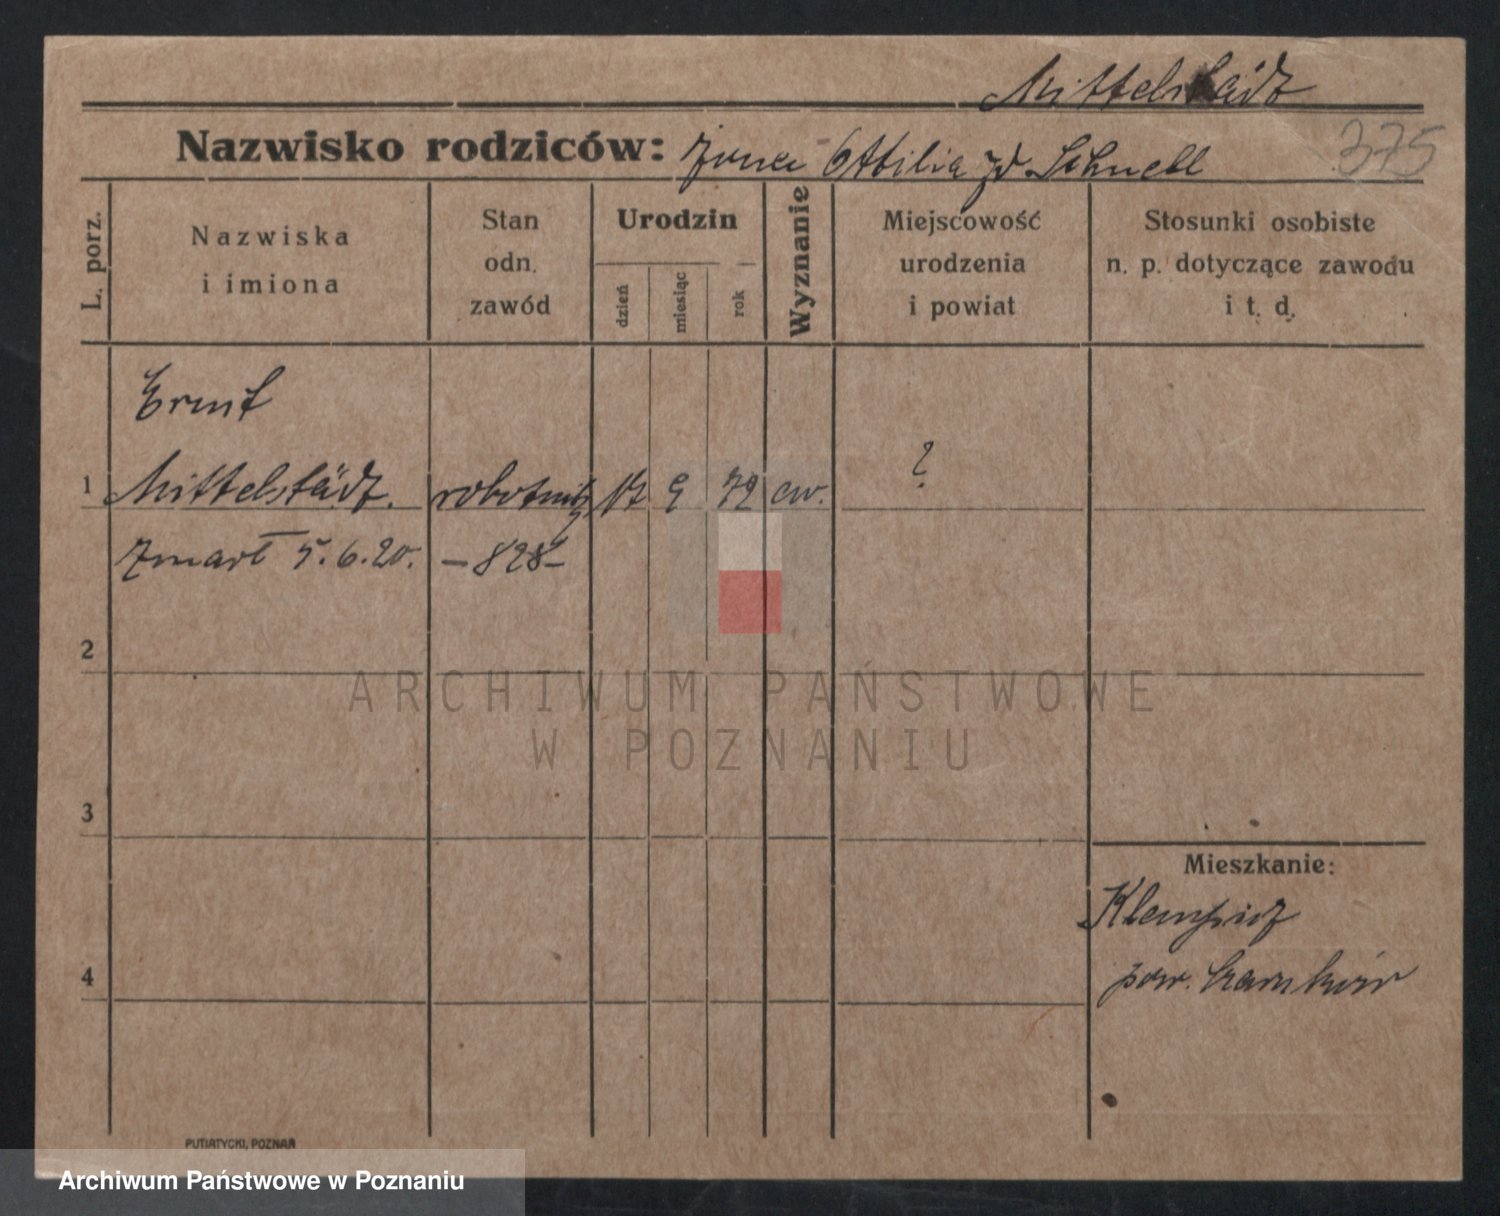 Mittelstädt
Nazwisko rodziców: żona Ottilia zd. Schnell 375
L. porz.
Nazwiska
i imiona
Stan
odn.
zawód
Urodzin
dzień
miesiąc
rok
Wyznanie
Miejscowość
urodzenia
i powiat
Stosunki osobiste
n. p. dotyczące zawodu
i t. d.
Ernst
1 Mittelstädt. robotnik 9 72 ew. ?
Zmarł 5.6.20. - 828 -
2
ARCHIWUM PAŃSTWOWE
W POZNANIU
3
Mieszkanie:
4
pow.
PUTIATYCKI, POZNAŃ
Archiwum Państwowe w Poznaniu